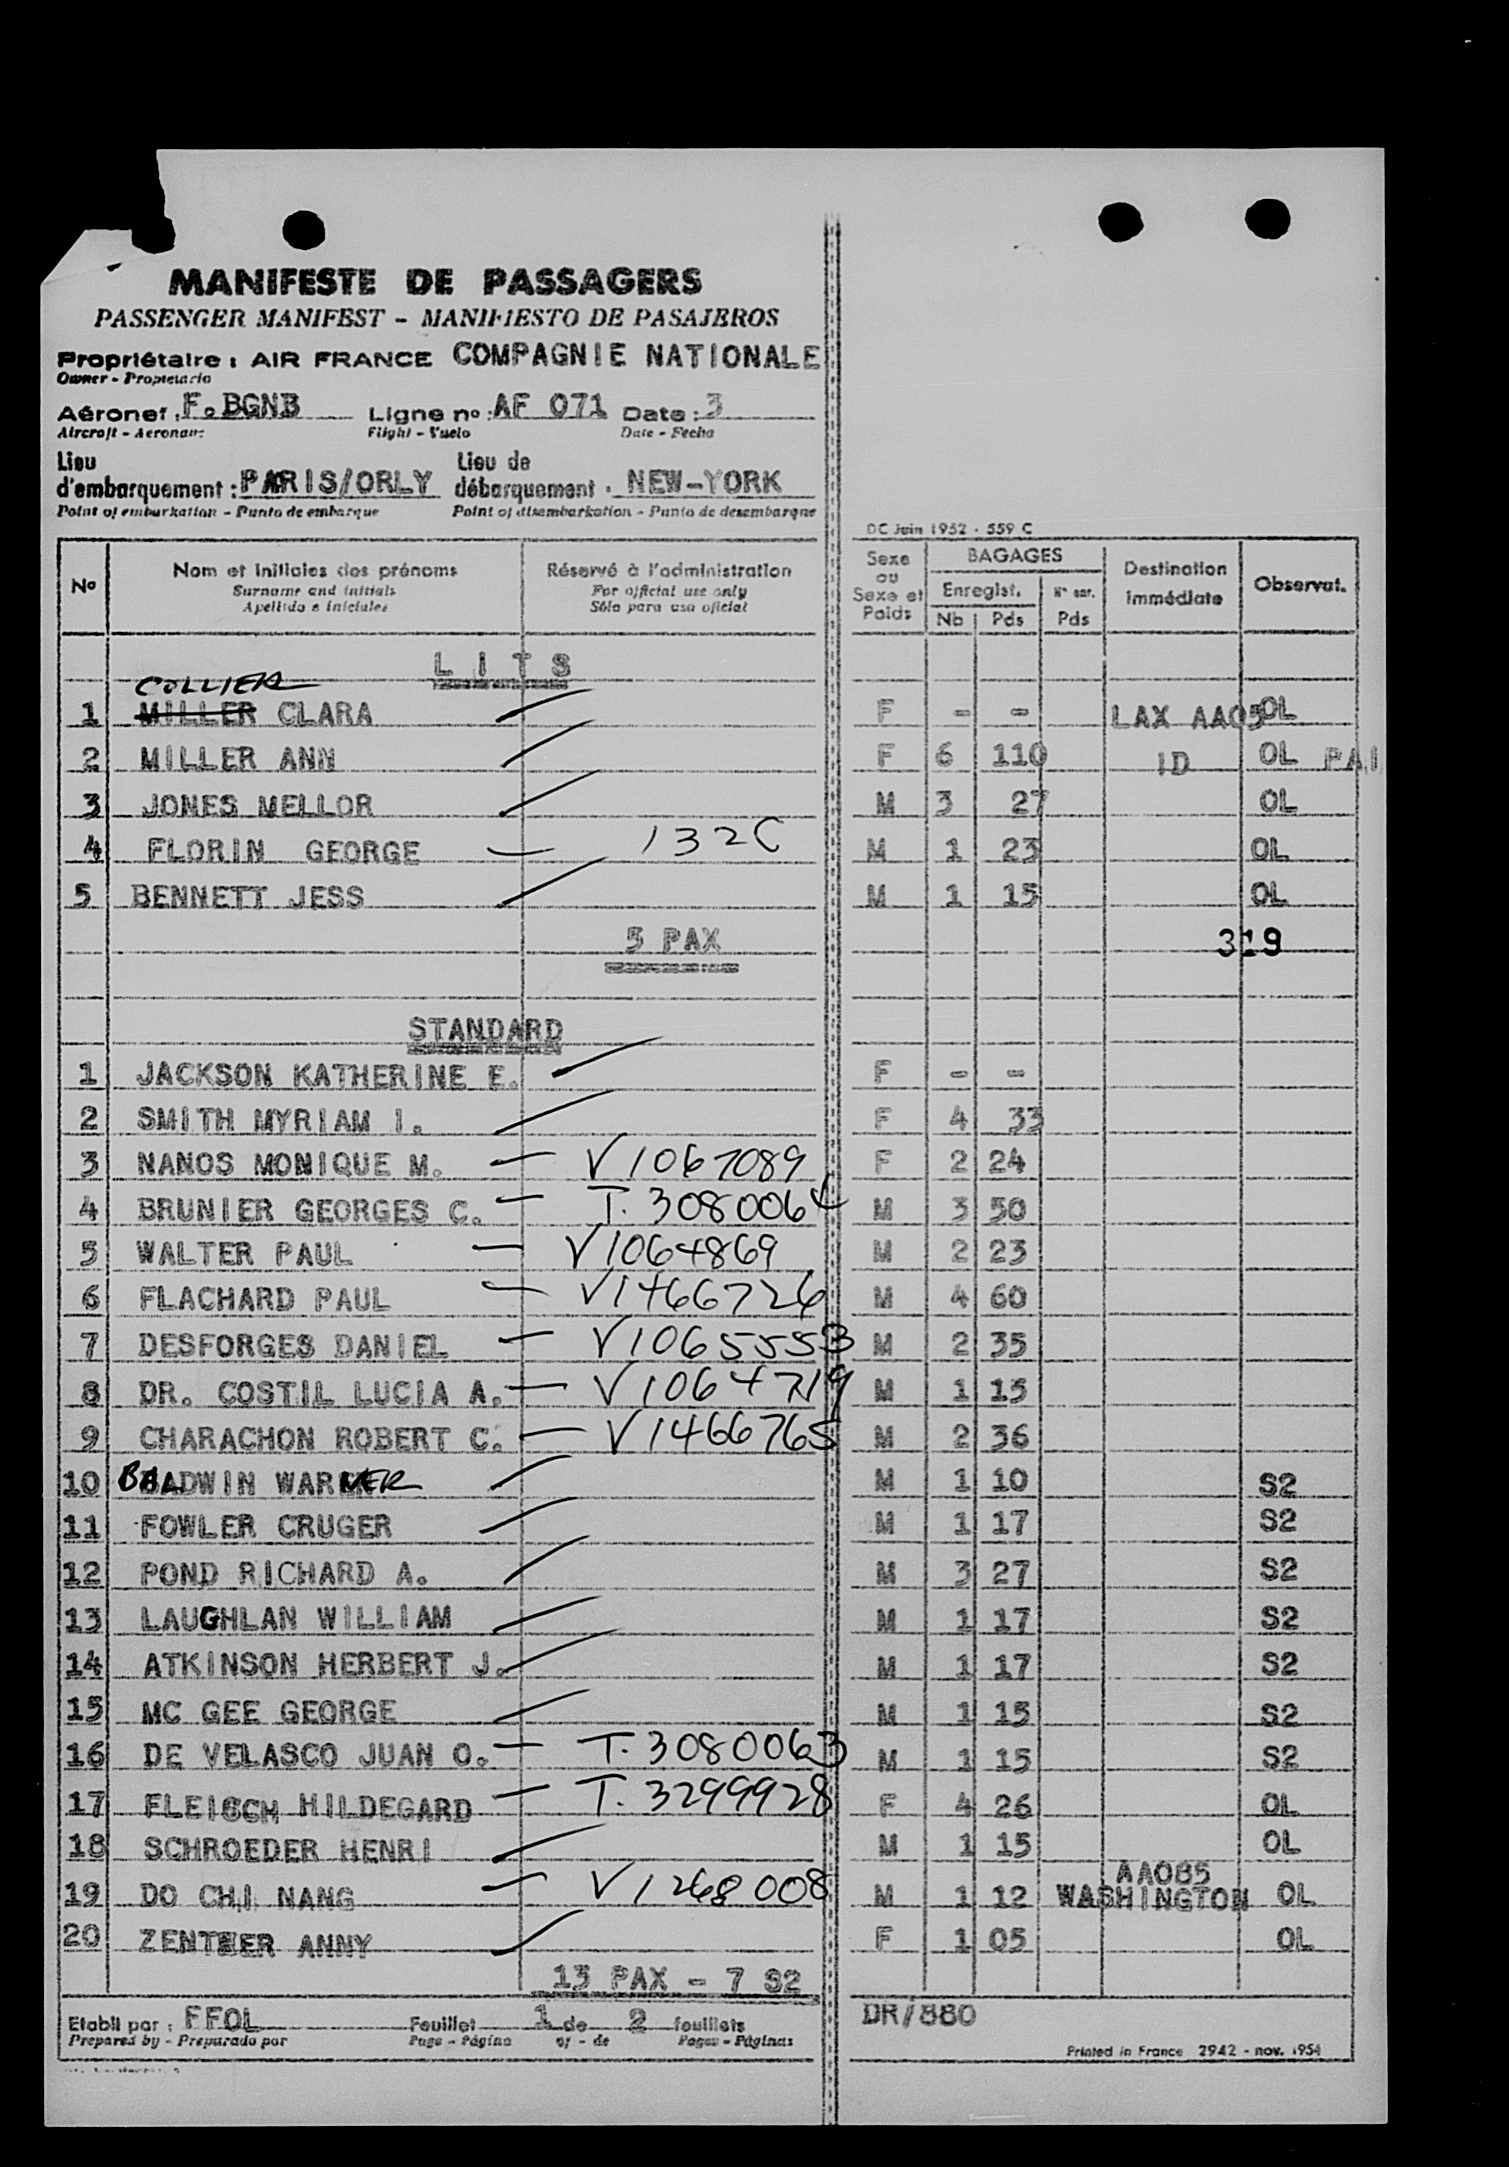 MANIFESTE DE PASSAGERS
PASSENGER MANIFEST - MANIFIESTO DE PASAJEROS
Propriétaire : AIR FRANCE COMPAGNIE NATIONALE
Owner - Propietario
Aéronef : F.BGNB Ligne no : AF 071 Date : 3
Aircraft - Aeronave Flight - Vuelo Date - Fecha
Lieu d'embarquement : PARIS/ORLY Lieu de débarquement : NEW-YORK
Point of embarkation - Punto de embarque Point of disembarkation - Punto de desembarque
DC Juin 1952 - 559 C
No Nom et initiales des prénoms Réservé à l'administration Sexe ou Sexe et Poids BAGAGES Destination immédiate Observat.
Surname and initials For official use only Enregist.
Apellido e iniciales Sólo para uso oficial Nb Pds Pds
LITS
COLLIER
1 MILLER CLARA F - - LAX AA05 OL
2 MILLER ANN F 6 110 ID OL PAI
3 JONES MELLOR M 3 27 OL
4 FLORIN GEORGE 132C M 1 23 OL
5 BENNETT JESS M 1 15 OL
5 PAX 319
STANDARD
1 JACKSON KATHERINE E. F - -
2 SMITH MYRIAM I. F 4 33
3 NANOS MONIQUE M. V1067089 F 2 24
4 BRUNIER GEORGES C. T. 308006 M 3 50
5 WALTER PAUL V1064869 M 2 23
6 FLACHARD PAUL V1466726 M 4 60
7 DESFORGES DANIEL V1065553 M 2 35
8 DR. COSTIL LUCIA A. V1064719 M 1 15
9 CHARACHON ROBERT C. V1466765 M 2 36
10 BALDWIN WARNER M 1 10 S2
11 FOWLER CRUGER M 1 17 S2
12 POND RICHARD A. M 3 27 S2
13 LAUGHLAN WILLIAM M 1 17 S2
14 ATKINSON HERBERT J. M 1 17 S2
15 MC GEE GEORGE M 1 15 S2
16 DE VELASCO JUAN O. T. 3080063 M 1 15 S2
17 FLEISCH HILDEGARD T. 3299928 F 4 26 OL
18 SCHROEDER HENRI M 1 15 OL
AA085
19 DO CHI NANG V1268008 M 1 12 WASHINGTON OL
20 ZENTNER ANNY F 1 05 OL
13 PAX - 7 S2
Etabli par : FFOL Feuillet 1 de 2 feuillets DR/880
Prepared by - Preparado por Page - Página of - de Pages - Páginas
Printed in France 2942 - nov. 1954